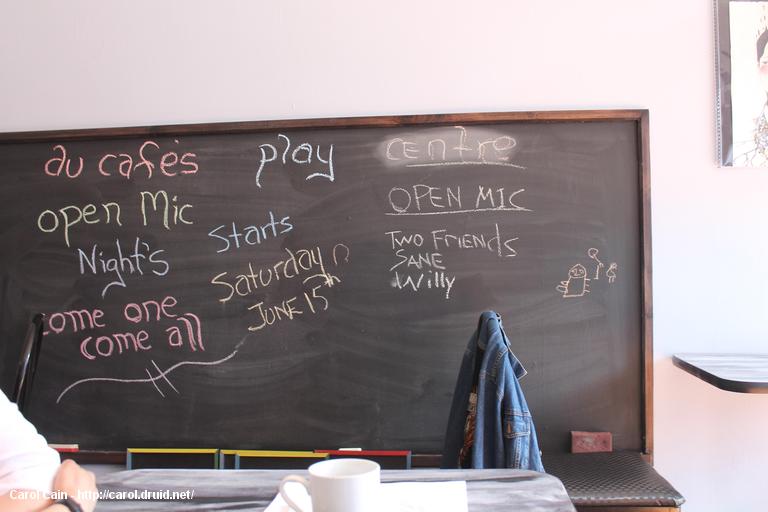 au cafés
open Mic
Night's
come one
come all
play
starts
Saturday
JUNE 15th
centre
OPEN MIC
TWO FRIENdS
SANE
Willy
Carol Cain - http://carol.druid.net/